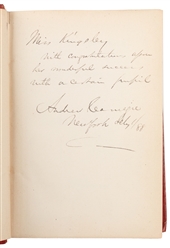 Miss Kingsley
with congratulations upon
her wonderful success
with a certain pupil
Andrew Carnegie
New York